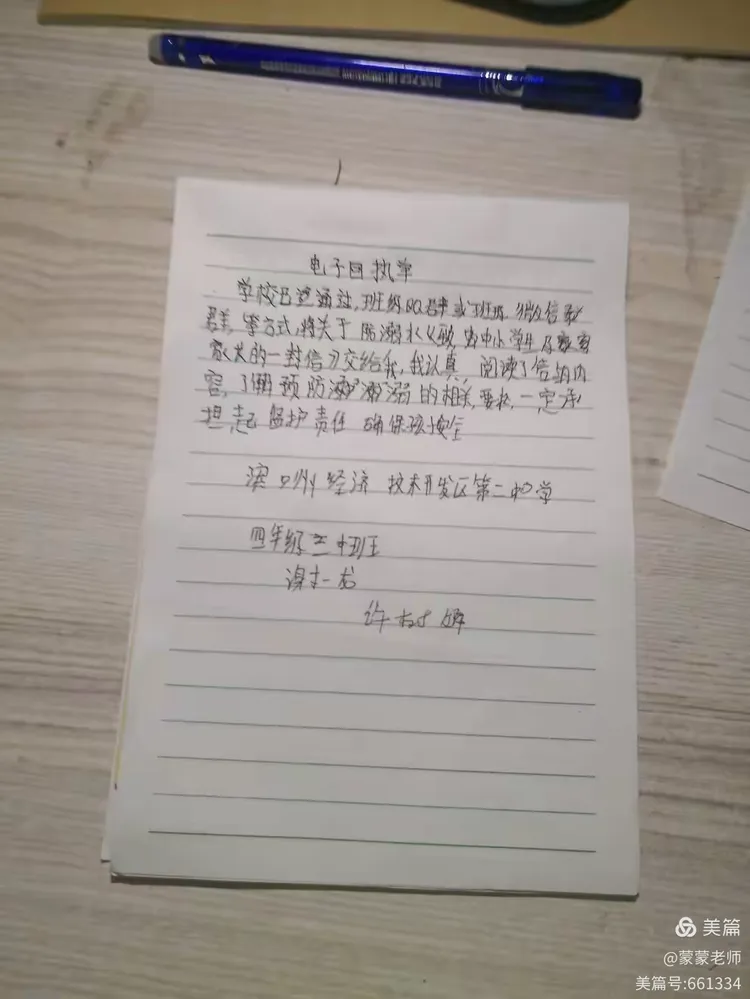 电子回执单
学校已通过,班级QQ群或班级,微信
群,等方式,将关于防溺水《致 中小学生
家长的一封信》交给我,我认真,阅读了信的内
容,了解预防溺 的相关,要求,一定承
担起监护责任 确保孩 安全
滨州经济 技术开发区第二中学
四年级三班
许
美篇
@蒙蒙老师
美篇号:661334